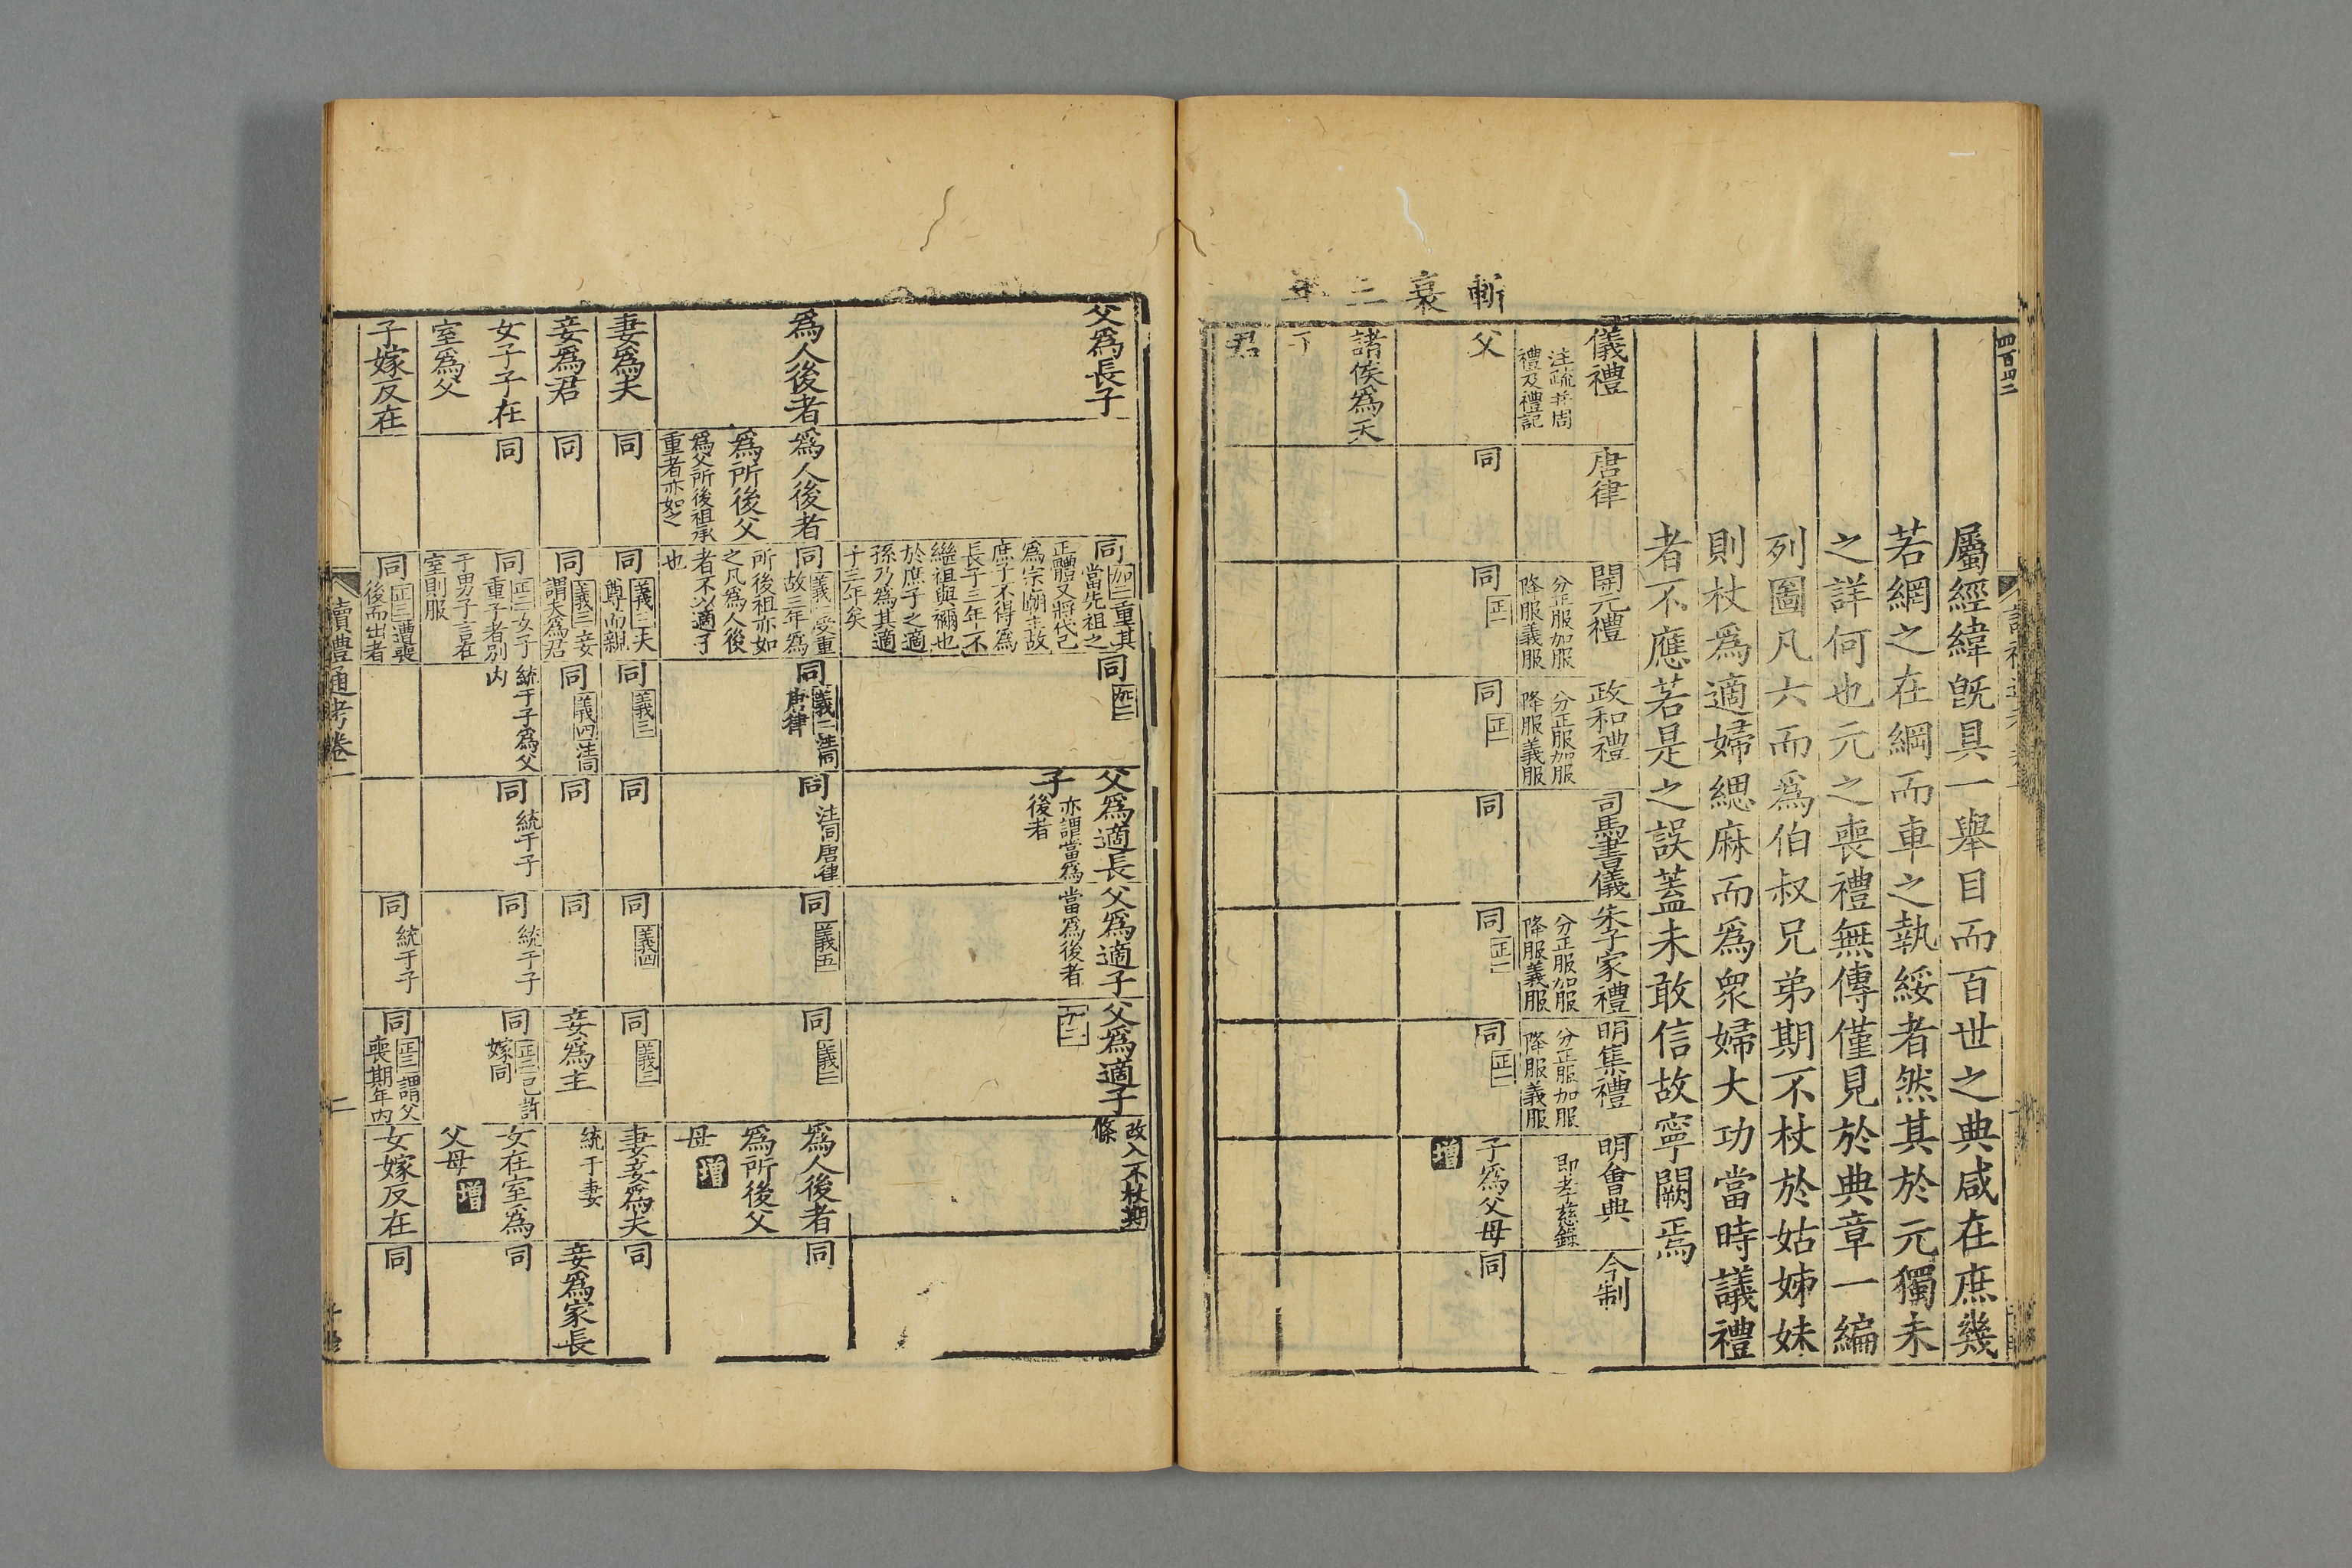 四百四二
屬經緯既具一舉目而百世之典咸在庶幾
若網之在綱而車之執綏者然其於元獨未
之詳何也元之喪禮無傳僅見於典章一編
列圖凡六而爲伯叔兄弟期不杖於姑姊妹
則杖爲適婦緦麻而爲衆婦大功當時議禮
者不應若是之誤蓋未敢信故寧闕焉
斬衰三年
儀禮
注疏并周
禮及禮記
唐律
開元禮
分正服加服
降服義服
政和禮
分正服加服
降服義服
司馬書儀
朱子家禮
分正服加服
降服義服
明集禮
分正服加服
降服義服
明會典
即孝慈錄
今制
父
同
同 正一
同 正一
同
同 正一
同 正一
子爲父母
增
同
諸侯爲天
子
君
父爲長子
同 加一重其
當先祖之
正體又將代己
爲宗廟主故
庶子不得爲
長子三年不
繼祖與禰也
於庶子之適
孫乃爲其適
子三年矣
同 加二
父爲適長
子
亦謂當爲
後者
父爲適子
當爲後者
父爲適子
加二
改入不杖期
條
爲人後者
爲人後者
爲所後父
爲父所後祖承
重者亦如之
同 義一受重
故三年爲
所後祖亦如
之凡爲人後
者不以適子
也
同 義二注同
唐律
同 注同唐律
同 義五
同 義二
爲人後者
爲所後父
母 增
同
妻爲夫
同
同 義二夫
尊而親
同 義三
同
同 義四
同 義三
妻妾爲夫
同
妾爲君
同
同 義三妾
謂夫爲君
同 義四注同
同
同
妾爲主
統于妻
妾爲家長
女子子在
室爲父
同
同 正二女子
重子者別
于男子言在
室則服
統于子爲父
內
同 統于子
同 統于子
同 正二已許
嫁同
女在室爲
父母 增
同
子嫁反在
同 正三遭喪
後而出者
同 統于子
同 正三謂父
喪期年內
女嫁反在
同
讀禮通考卷一
二